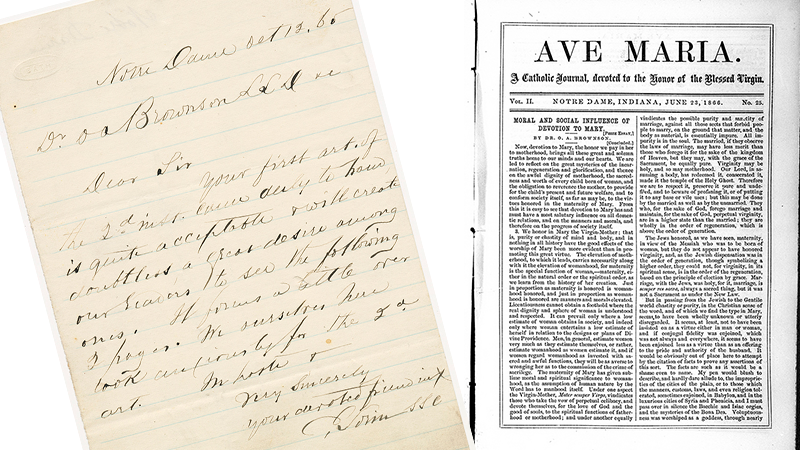 Notre Dame Oct 13. 65
Dr O A Brownson LLD &c
Dear Sir
Your first art. of
the 2d inst. came duly to hand
is quite acceptable & will create
doubtless a great desire among
our readers to see the following
ones. It forms a little over
3 pages. We ourselves here
look anxiously for the 2d
art. In haste
very sincerely
your devoted friend in
Sorin
AVE MARIA.
A Catholic Journal, devoted to the Honor of the Blessed Virgin.
VOL. II. NOTRE DAME, INDIANA, JUNE 23, 1866. No. 25.
MORAL AND SOCIAL INFLUENCE OF
DEVOTION TO MARY. [PRIZE ESSAY.]
BY DR. O. A. BROWNSON.
[Concluded.]
Now, devotion to Mary, the honor we pay in her
to motherhood, brings all these great and solemn
truths home to our minds and our hearts. We are
led to reflect on the great mysteries of the incar-
nation, regeneration and glorification, and thence
on the awful dignity of motherhood, the sacred-
ness and worth of every child born of woman, and
the obligation to reverence the mother, to provide
for the child's present and future welfare, and to
conform society itself, as far as may be, to the vir-
tues honored in the maternity of Mary. From
this it is easy to see that devotion to Mary has and
must have a most salutary influence on all domes-
tic relations, and on the manners and morals, and
therefore on the progress of society itself.
3. We honor in Mary the Virgin-Mother; that
is, purity or chastity of mind and body, and in
nothing in all history have the good effects of the
worship of Mary been more evident than in pro-
moting this great virtue. The elevation of moth-
erhood, to which it leads, carries necessarily along
with it the elevation of womanhood, for maternity
is the special function of woman,—maternity, ei-
ther in the natural order or the spiritual order, as
we learn from the history of her creation. Just
in proportion as maternity is honored is woman-
hood honored, and just in proportion as woman-
hood is honored are manners and morals elevated.
Licentiousness cannot obtain a foothold where the
real dignity and sphere of woman is understood
and respected. It can prevail only where a low
estimate of woman obtains in society, and indeed
only where woman entertains a low estimate of
herself in relation to the designs or plans of Di-
vine Providence. Men, in general, estimate women
very much as they estimate themselves, or rather,
estimate womanhood as women estimate it, and if
women regard womanhood as invested with sa-
cred and awful functions, they will be as averse to
wronging her as to the commission of the crime of
sacrilege. The maternity of Mary has given sub-
lime moral and spiritual significance to woman-
hood, as the assumption of human nature by the
Word has to manhood itself. Under one aspect
the Virgin-Mother, Mater semper Virgo, vindicates
those who take the vow of perpetual celibacy, and
devote themselves, for the love of God and the
good of souls, to the spiritual functions of father-
hood or motherhood; and under another equally
vindicates the possible purity and sanctity of
marriage, against all those sects that forbid peo-
ple to marry, on the ground that matter, and the
body as material, is essentially impure. All im-
purity is in the soul. The married, if they observe
the laws of marriage, may have less merit than
those who forego it for the sake of the kingdom
of Heaven, but they may, with the grace of the
Sacrament, be equally pure. Virginity may be
holy, and so may motherhood. Our Lord, in as-
suming a body, has redeemed it, consecrated it,
made it the temple of the Holy Ghost. Therefore
we are to respect it, preserve it pure and unde-
filed, and to beware of profaning it, or of putting
it to any base or vile uses; but this may be done
by the married as well as by the unmarried. They
who, for the sake of God, forego marriage and
maintain, for the sake of God, perpetual virginity,
are in a higher state than the married; they are
wholly in the order of regeneration, which is
above the order of generation.
The Jews honored, as we have seen, maternity,
in view of the Messiah who was to be born of
woman, but they do not appear to have honored
virginity, and, as the Jewish dispensation was in
the order of generation, though symbolizing a
higher order, they could not, for virginity, in its
spiritual sense, is in the order of the regeneration,
based on the principle of election by grace. Mar-
riage, with the Jews, was holy, for it, marriage, is
semper res sacra, always a sacred thing, but it was
not a Sacrament as under the New Law.
But in passing from the Jewish to the Gentile
world chastity or purity, in the Christian sense of
the word, and of which we find the type in Mary,
seems to have been wholly unknown or utterly
disregarded. It seems, at least, not to have been
insisted on as a virtue either in man or woman,
and if conjugal fidelity was enjoined, which
was not always and everywhere, it seems to have
been enjoined less as a virtue than as an offering
to the pride and authority of the husband. It
would be obviously out of place here to attempt
by the citation of facts to prove any assertions of
this sort. The facts are such as it would be a
shame even to name. My pen would blush to
describe, and hardly dare allude to, the impropri-
eties of the cities of the plain, or to those which
the manners, customs, laws, and even religion tol-
erated, sometimes enjoined, in Babylon, and in the
luxurious cities of Syria and Phenicia, and I must
pass over in silence the Bacchic and Isiac orgies,
and the mysteries of the Bona Dea. Voluptuous-
ness was worshiped as a goddess, through nearly